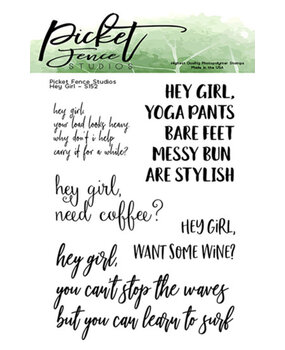 Picket
Fence
STUDIOS
Highest Quality Photopolymer Stamps
Made in the USA
Picket Fence Studios
Hey Girl - S152
hey girl,
your load looks heavy.
why don't i help
carry it for a while?
HEY GIRL,
YOGA PANTS
BARE FEET
MESSY BUN
ARE STYLISH
hey girl,
need coffee?
HEY GIRL,
WANT SOME WINE?
hey girl,
you can't stop the waves
but you can learn to surf